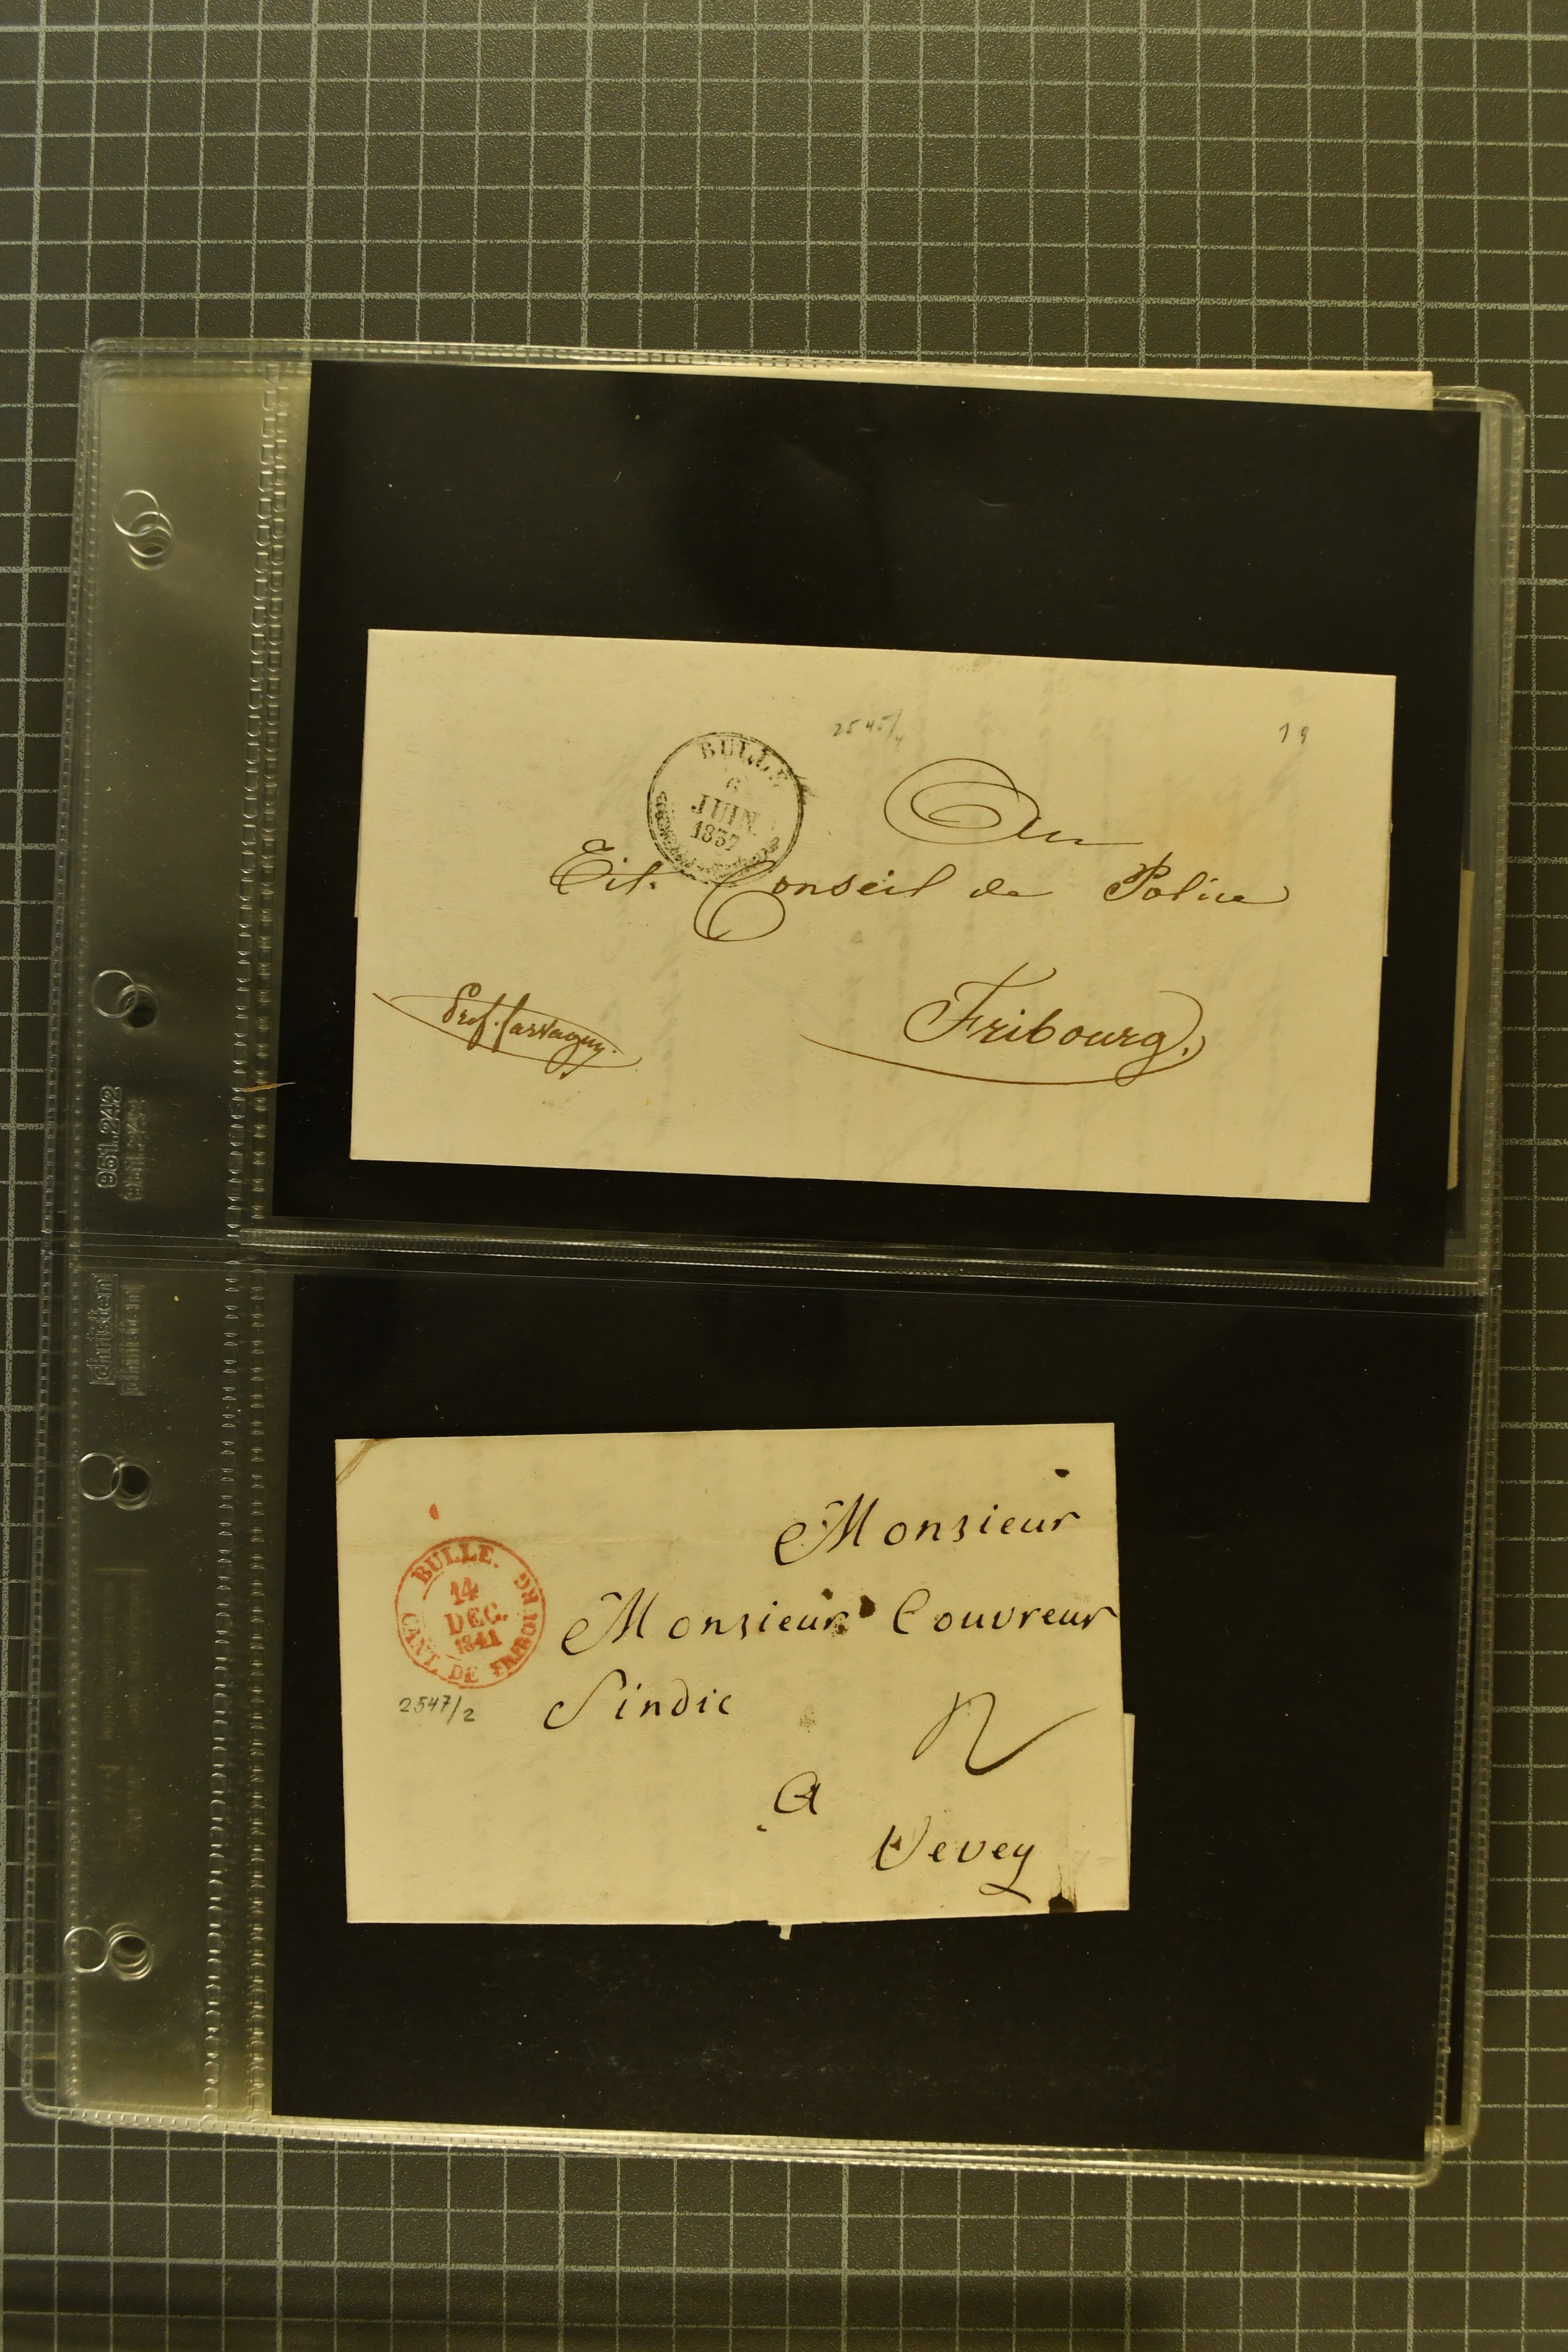 BULLE
6
JUIN.
1837
2545/4
19
Au
Tit. Conseil de Police
Fribourg.
Préf.
951.242
christen
Monsieur
Monsieur Couvreur
Sindic
2
A
Vevey
BULLE.
14
DEC.
1841
CANT. DE FRIBOURG
2547/2